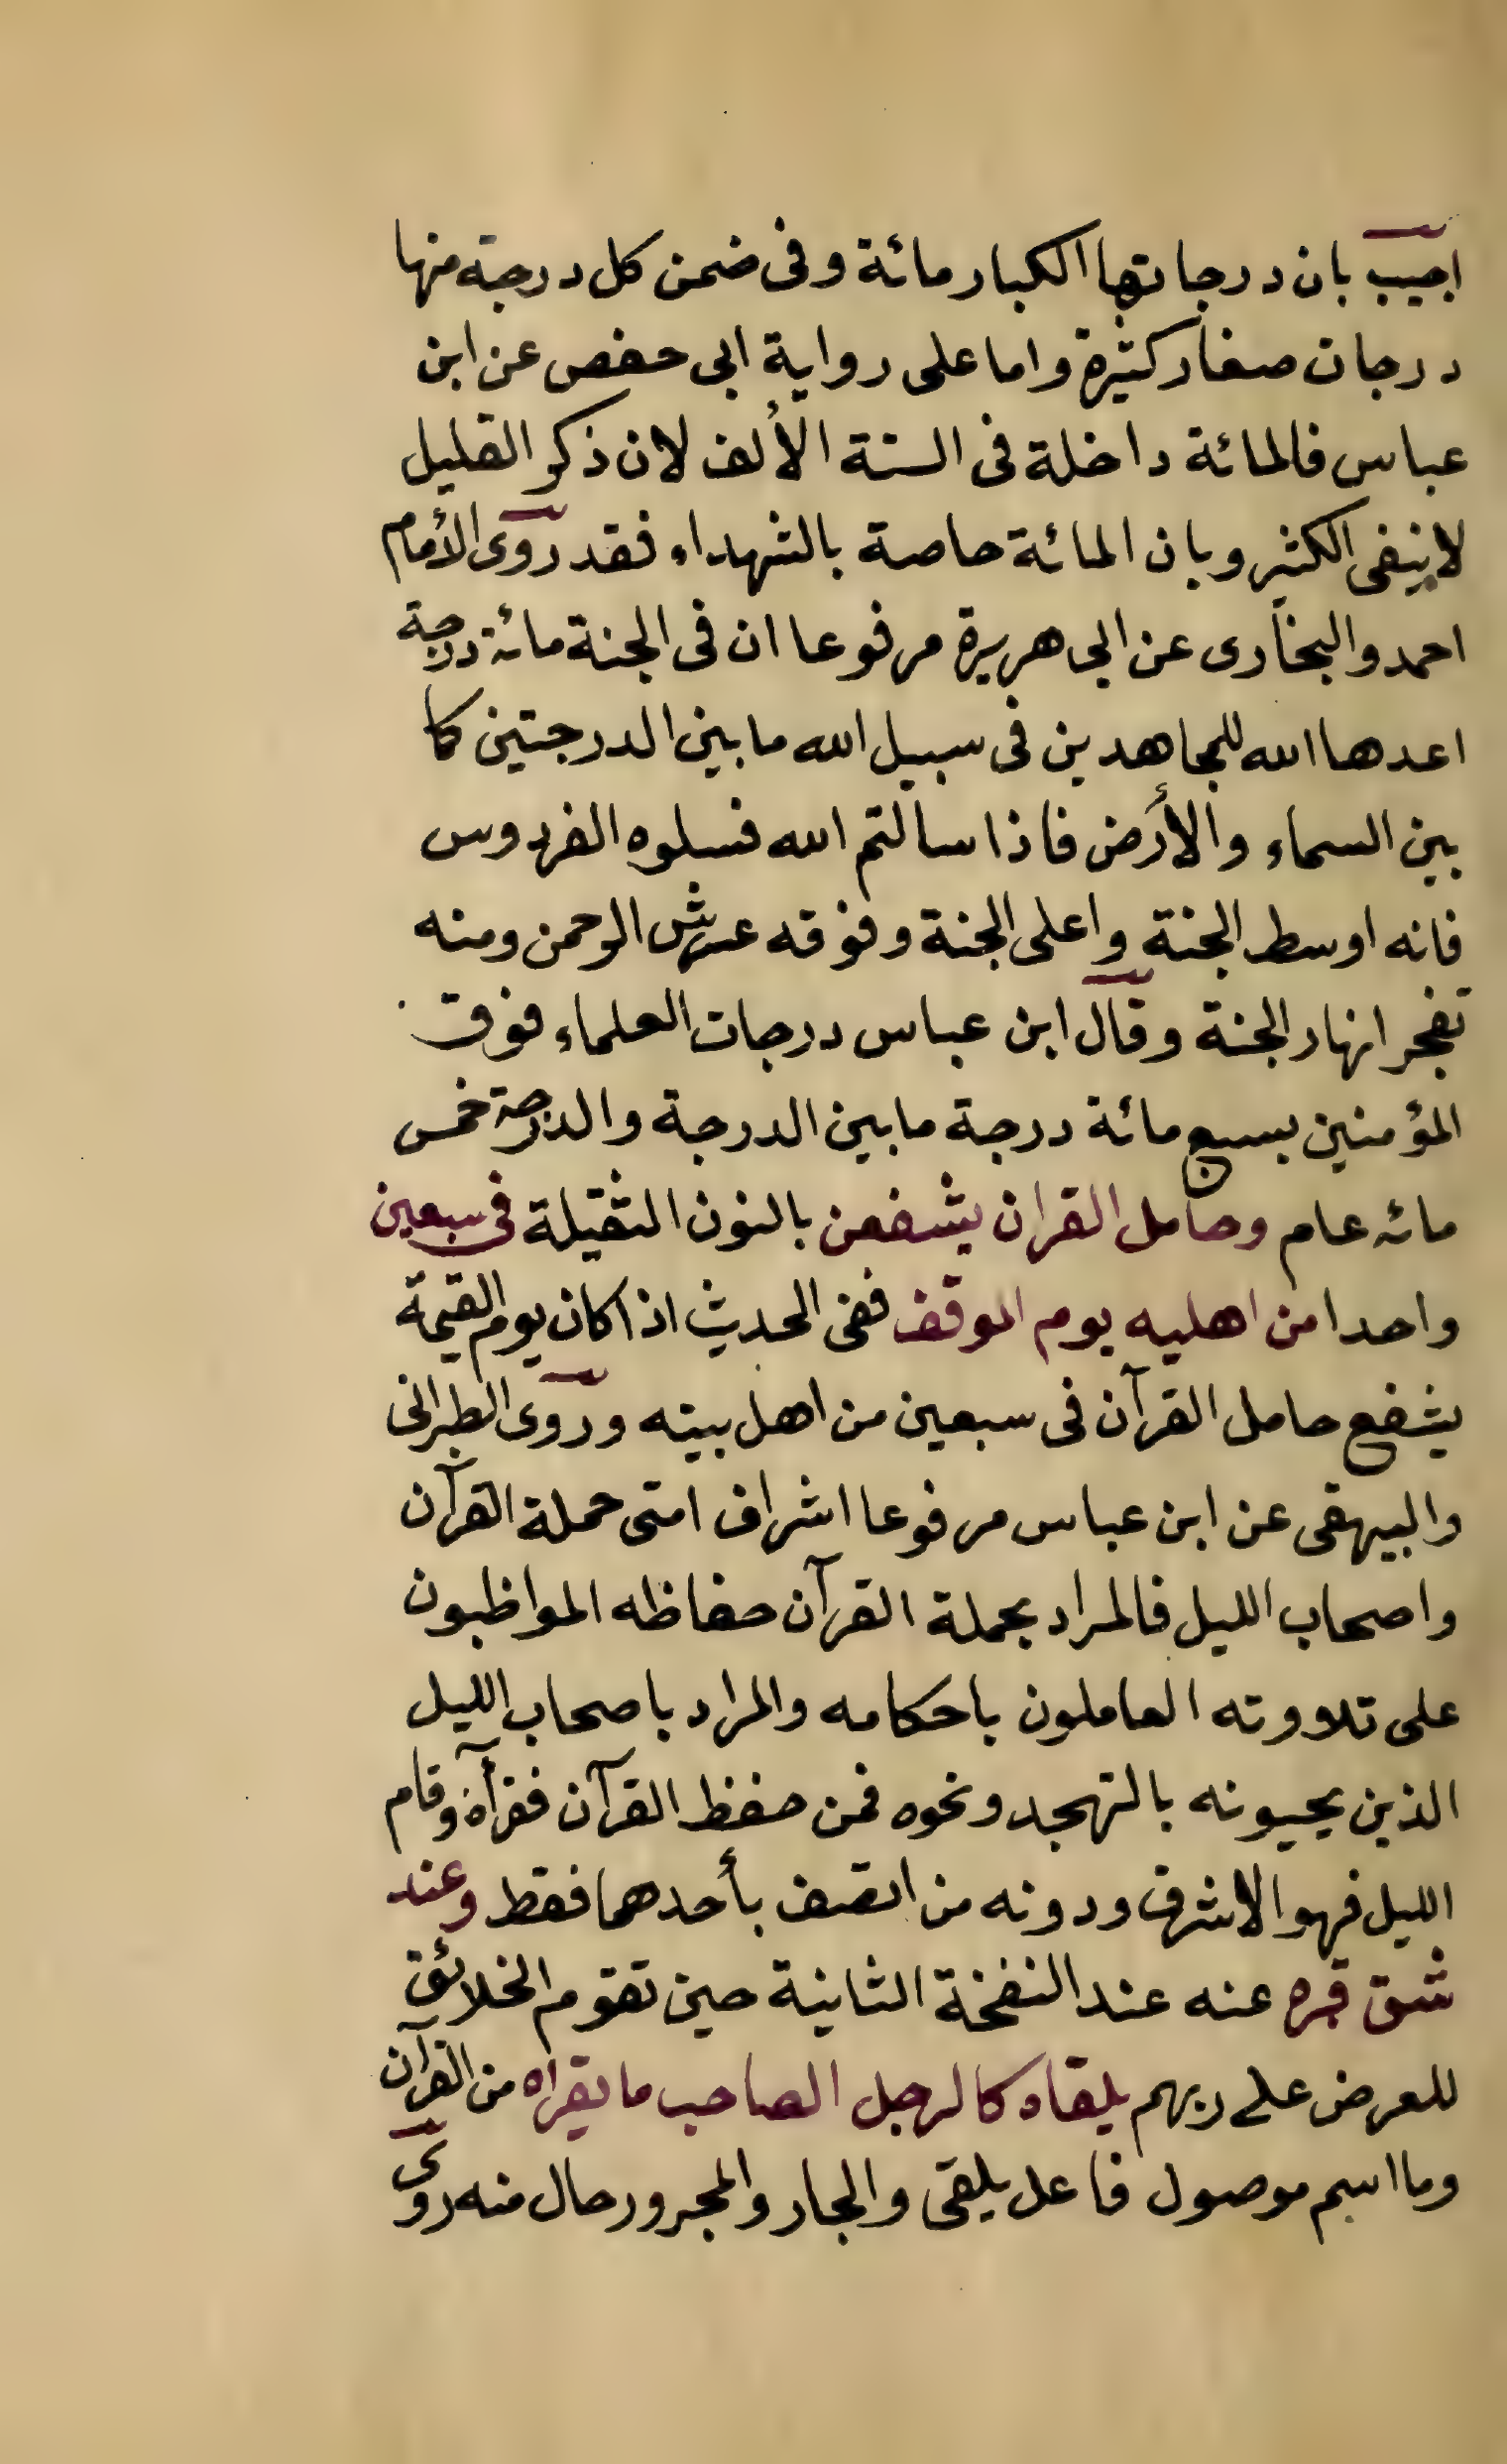 اجيب بان درجاتها الكبار مائة وفى ضمن كل درجة منها
درجات صغار كثيرة واما على رواية ابى حفص عن ابن
عباس فالمائة داخلة فى الستة الألف لان ذكر القليل
لا ينفى الكثير وبان المائة خاصة بالشهداء فقد روى الأمام
احمد والبخارى عن ابى هريرة مرفوعا ان فى الجنة مائة درجة
اعدها الله للمجاهدين فى سبيل الله ما بين الدرجتين كما
بين السماء والأرض فاذا سالتم الله فسلوه الفردوس
فانه اوسط الجنة واعلى الجنة وفوقه عرش الرحمن ومنه
تفجر انهار الجنة وقال ابن عباس درجات العلماء فوق
المؤمنين بسبع مائة درجة ما بين الدرجة والدرجة خمس
مائه عام وحامل القران يشفعن بالنون الثقيلة فى سبعين
واحدا من اهليه يوم الموقف ففى الحديث اذا كان يوم القيمة
يشفع حامل القرآن فى سبعين من اهل بيته وروى الطبرانى
والبيهقى عن ابن عباس مرفوعا اشراف امتى حملة القرآن
واصحاب الليل فالمراد بحملة القرآن حفاظه المواظبون
على تلاوته العاملون باحكامه والمراد باصحاب الليل
الذين يحيونه بالتهجد ونحوه فمن حفظ القرآن فقرأه وقام
الليل فهو الاشرف ودونه من اتصف بأحدهما فقط وعند
شق قبره عنه عند النفخة الثانية حين تقوم الخلائق
للعرض على ربهم يلقاه كالرجل الصاحب ما يقراه من القرآن
وما اسم موصول فاعل يلقى والجار والمجرور حال منه روى